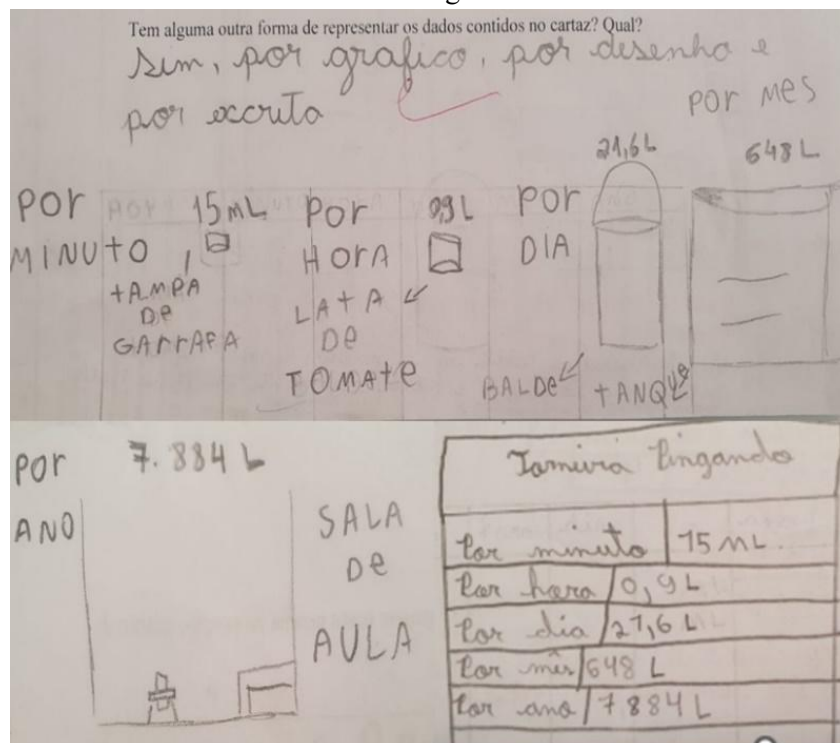 Tem alguma outra forma de representar os dados contidos no cartaz? Qual?
Sim, por grafico, por desenho e
por escrita
POR MINUTO
15 ML
TAMPA
DE
GARRAFA
POR
HORA
0,9 L
LATA
DE
TOMATE
POR
DIA
21,6 L
BALDE
POR MES
648 L
TANQUE
POR
ANO
7.884 L
SALA
DE
AULA
Torneira Pingando
Por minuto 15 ML.
Por hora 0,9 L
Por dia 21,6 L
Por mês 648 L
Por ano 7884 L